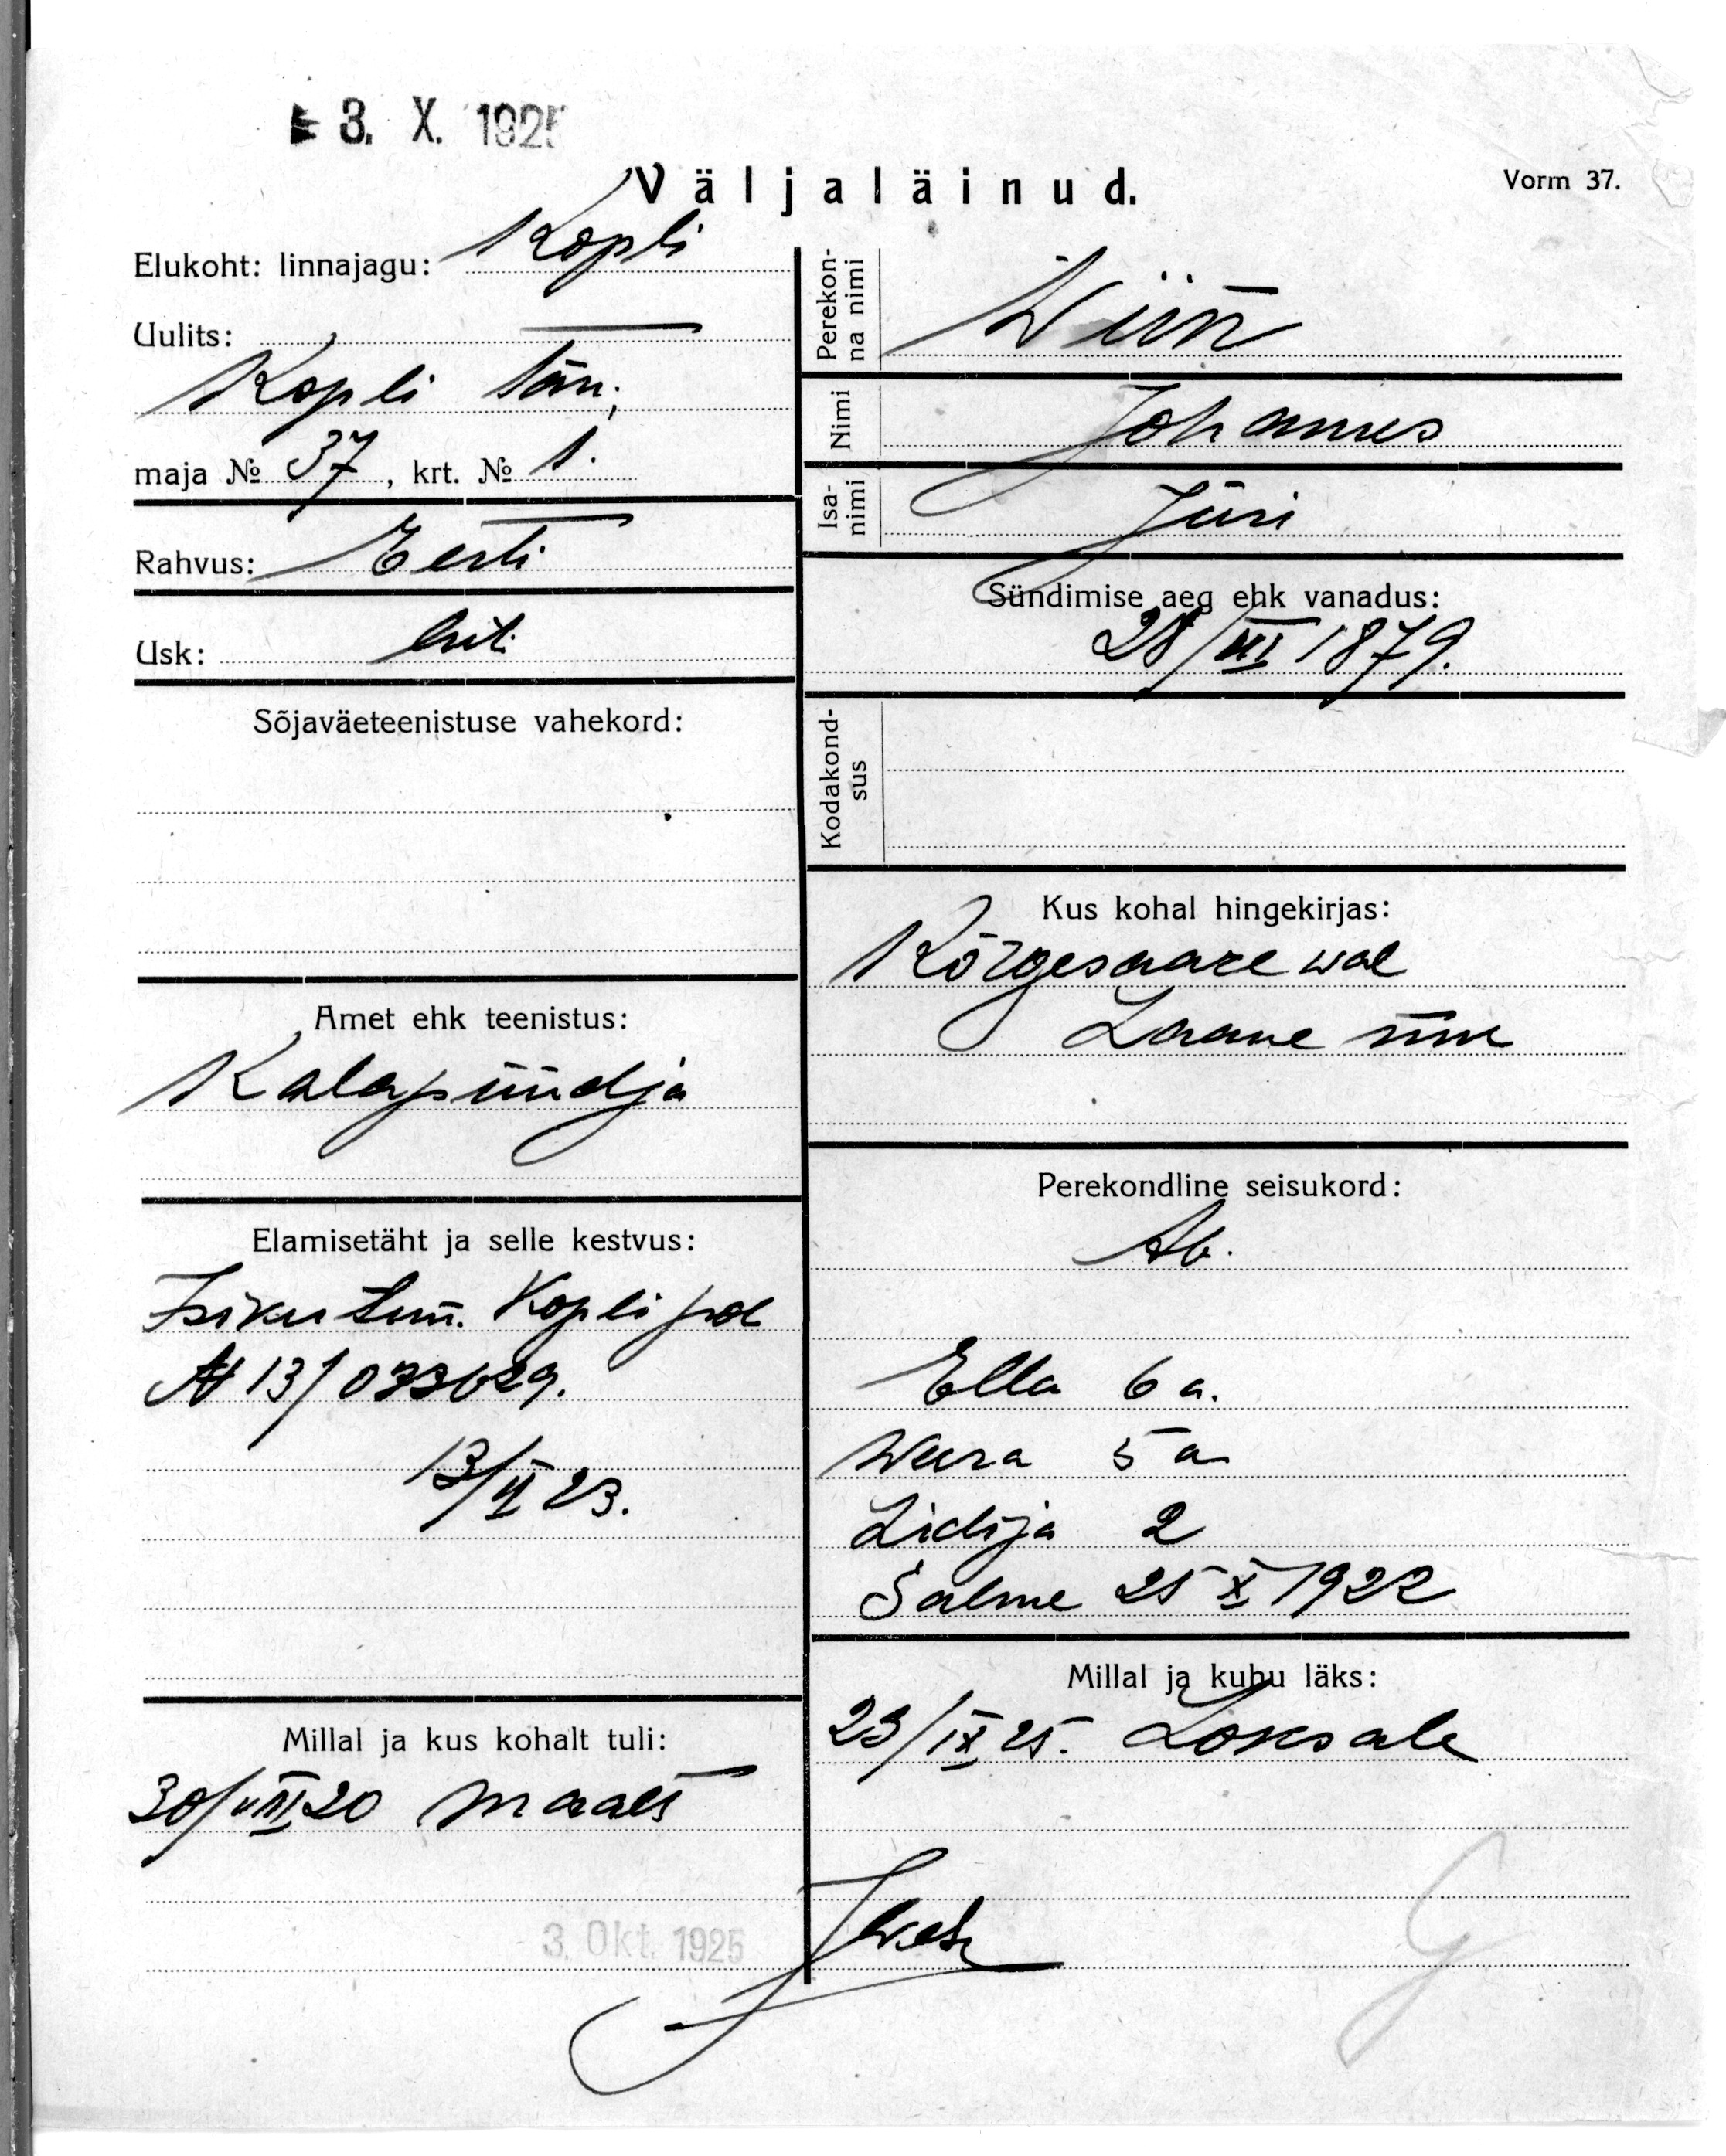 3. X. 1925
Väljaläinud.
Vorm 37.
Elukoht: linnajagu: Kopli
Uulits:
Kopli tän;
maja № 37, krt. № 1.
Rahvus: Eesti
Usk: lut.
Sõjaväeteenistuse vahekord:
Amet ehk teenistus:
Kalapüüdja
Elamisetäht ja selle kestvus:
Isiku tun. Kopli pol
13/033629.
13/II 23.
Millal ja kus kohalt tuli:
30/VIII 20 maalt
3. Okt. 1925
Perekonna nimi
Wiin
Nimi
Johannes
Isanimi
Jüri
Sündimise aeg ehk vanadus:
28/VII 1879.
Kodakondsus
Kus kohal hingekirjas:
Kõrgesaare wal
Lääne mk
Perekondline seisukord:
Ab.
Ella 6 a.
Weera 5 a
Lidija 2
Salme 25 X 1922
Millal ja kuhu läks:
23/IX 25. Loksale